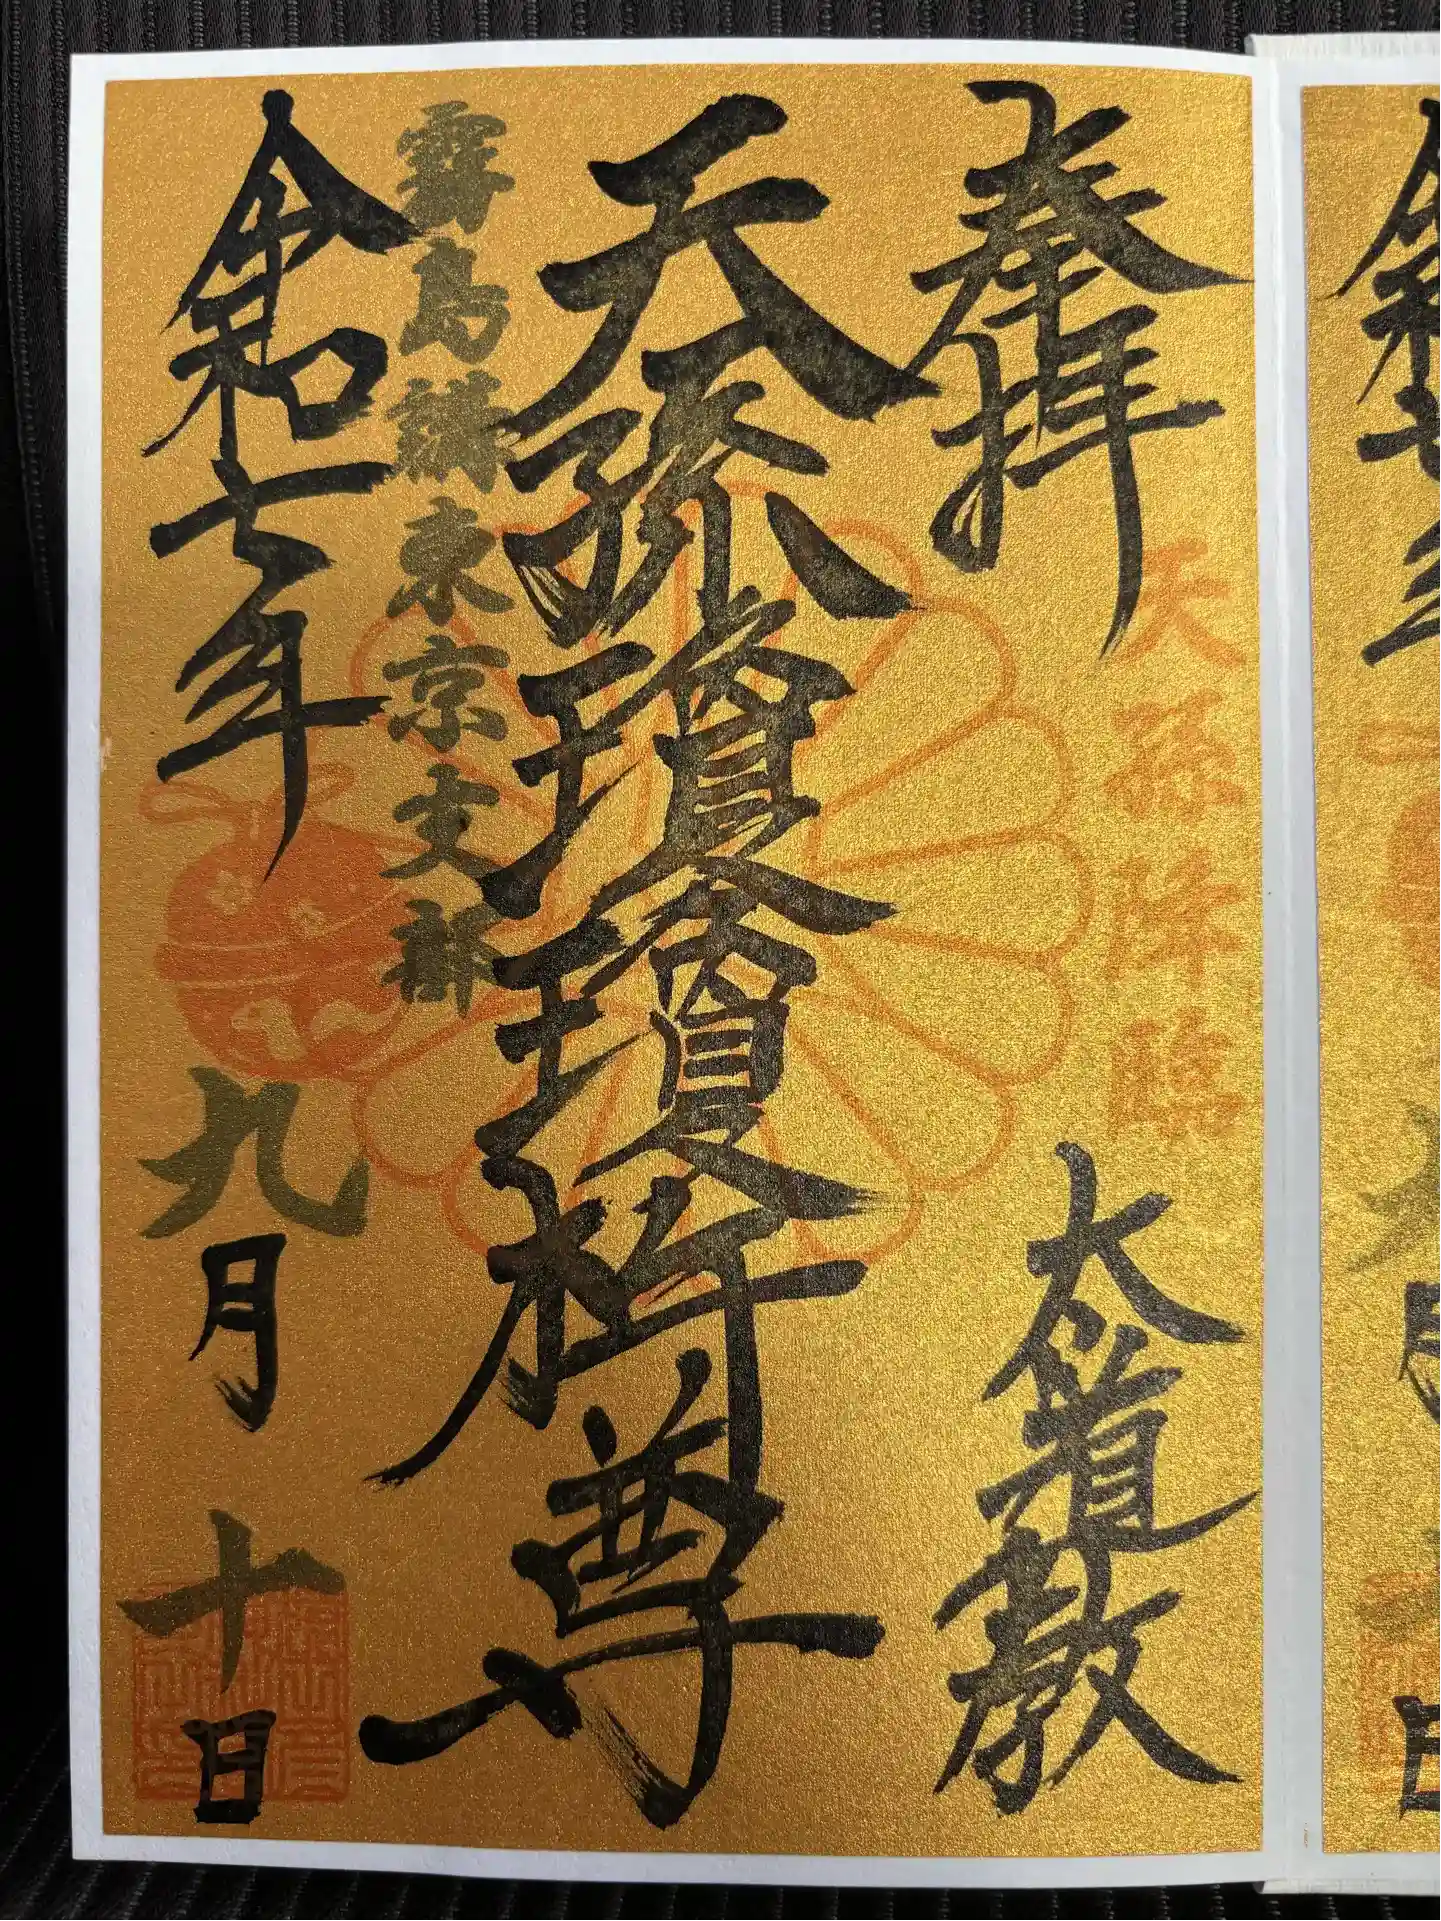 奉拝
天孫降臨
太道教
天孫瓊瓊杵尊
霧島講東京支部
令和七年九月十日